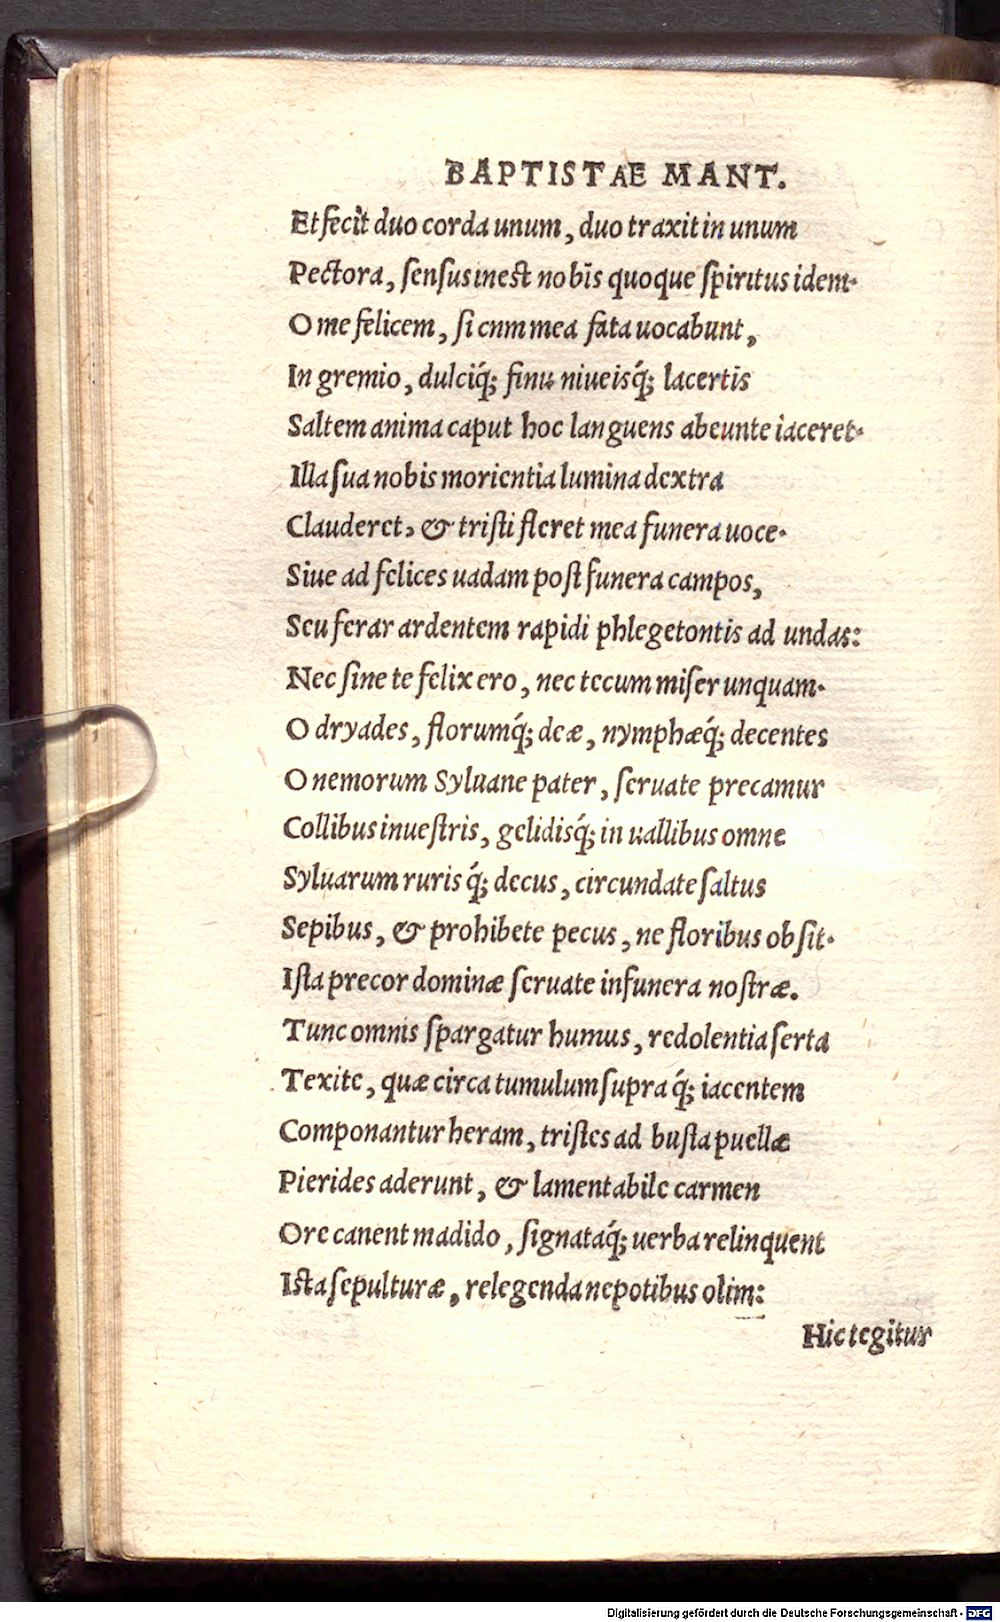 BAPTISTAE MANT.
Et fecit duo corda unum, duo traxit in unum
Pectora, ſenſus ineſt nobis quoque ſpiritus idem.
O me felicem, ſi cnm mea fata uocabunt,
In gremio, dulciq́; ſinu niueisq́; lacertis
Saltem anima caput hoc languens abeunte iaceret.
Illa ſua nobis morientia lumina dextra
Clauderet, & triſti fleret mea funera uoce.
Siue ad felices uadam poſt funera campos,
Seu ferar ardentem rapidi phlegetontis ad undas:
Nec ſine te felix ero, nec tecum miſer unquam.
O dryades, florumq́; deæ, nymphæq́; decentes
O nemorum Syluane pater, ſeruate precamur
Collibus in ueſtris, gelidisq́; in uallibus omne
Syluarum ruris q́; decus, circundate ſaltus
Sepibus, & prohibete pecus, ne floribus obſit.
Iſta precor dominæ ſeruate in funera noſtræ.
Tunc omnis ſpargatur humus, redolentia ſerta
Texite, quæ circa tumulum ſupra q́; iacentem
Componantur heram, triſtes ad buſta puellæ
Pierides aderunt, & lamentabile carmen
Ore canent madido, ſignataq́; uerba relinquent
Iſta ſepulturæ, relegenda nepotibus olim:
Hic tegitur
Digitalisierung gefördert durch die Deutsche Forschungsgemeinschaft - DFG